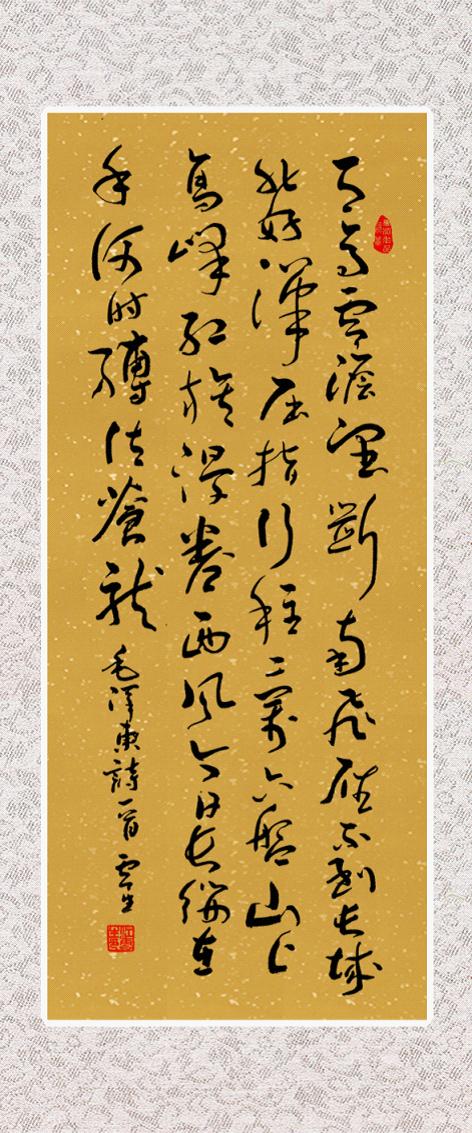 天高雲澹望斷南飛雁不到長城
非好漢屈指行程二萬六盤山上
高峰紅旗漫卷西風今日長纓在
手何時縛住蒼龍 毛澤東詩一首